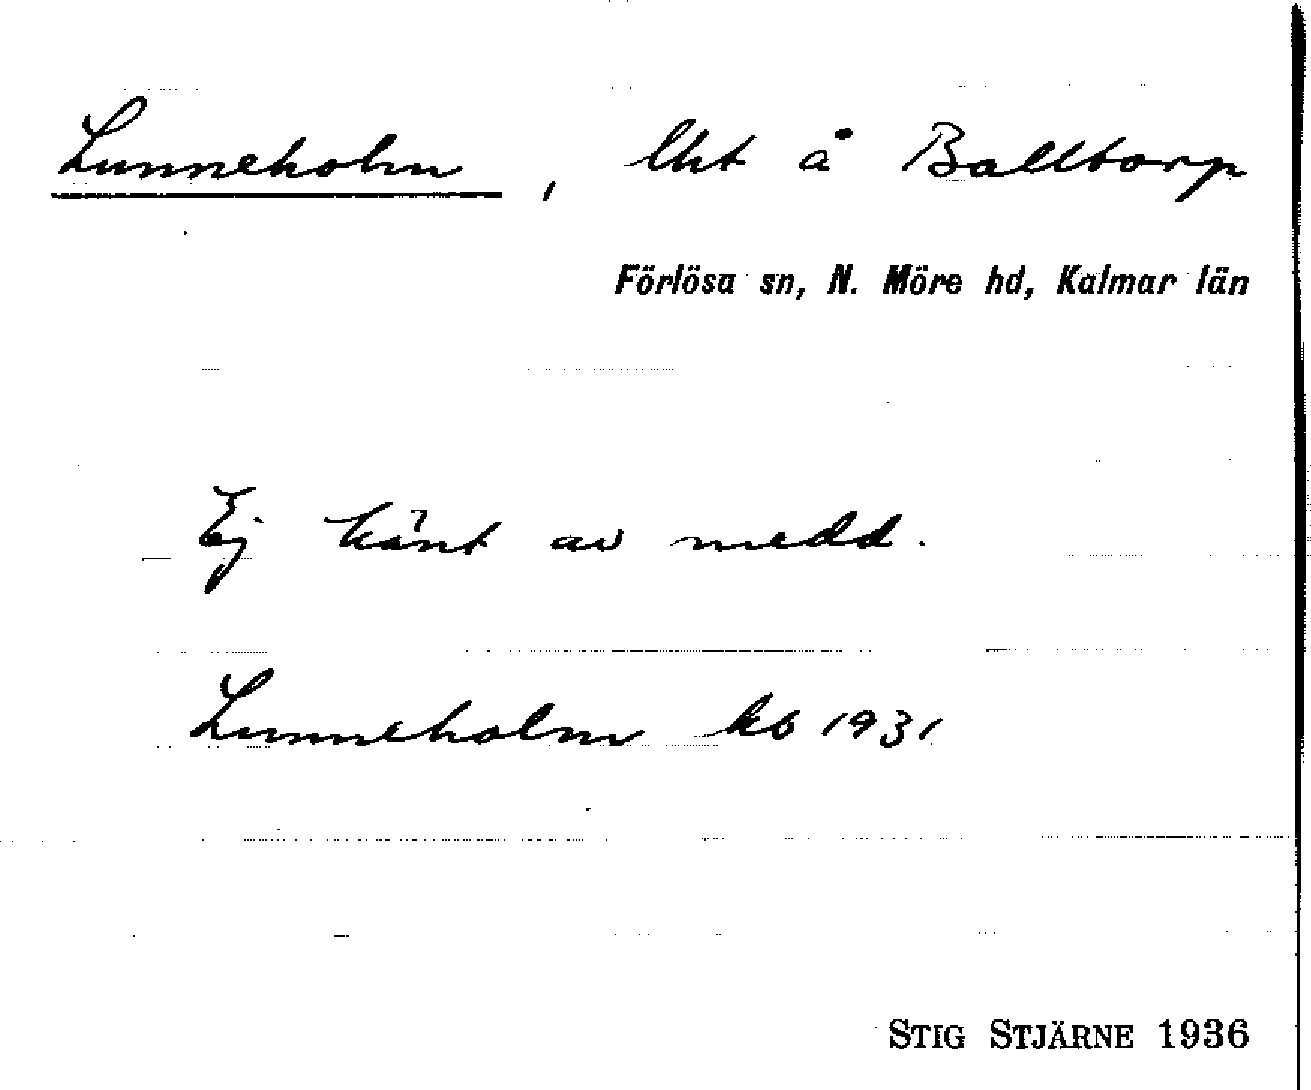 Lunneholm, lht å Balltorp
Förlösa sn, N. Möre hd, Kalmar län
Ej känt av medd.
Lunneholm kb 1931
STIG STJÄRNE 1936